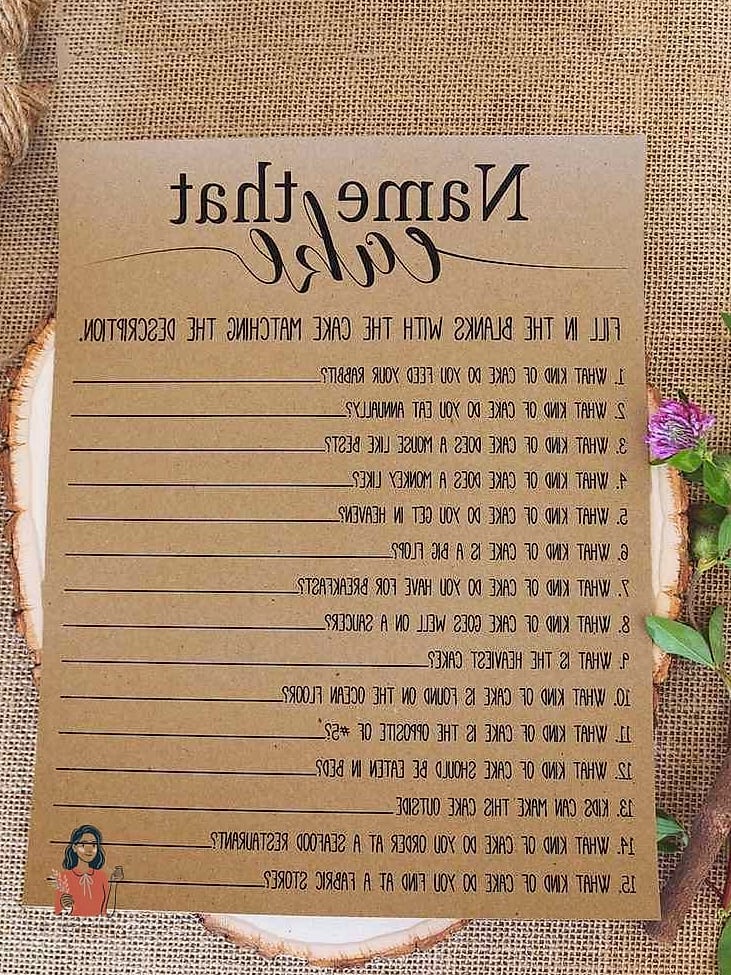 Name that
cake
FILL IN THE BLANKS WITH THE CAKE MATCHING THE DESCRIPTION.
1. WHAT KIND OF CAKE DO YOU FEED YOUR RABBIT?
2. WHAT KIND OF CAKE DO YOU EAT ANNUALLY?
3. WHAT KIND OF CAKE DOES A MOUSE LIKE BEST?
4. WHAT KIND OF CAKE DOES A MONKEY LIKE?
5. WHAT KIND OF CAKE DO YOU GET IN HEAVEN?
6. WHAT KIND OF CAKE IS A BIG FLOP?
7. WHAT KIND OF CAKE DO YOU HAVE FOR BREAKFAST?
8. WHAT KIND OF CAKE GOES WELL ON A SAUCER?
9. WHAT IS THE HEAVIEST CAKE?
10. WHAT KIND OF CAKE IS FOUND ON THE OCEAN FLOOR?
11. WHAT KIND OF CAKE IS THE OPPOSITE OF #5?
12. WHAT KIND OF CAKE SHOULD BE EATEN IN BED?
13. KIDS CAN MAKE THIS CAKE OUTSIDE
14. WHAT KIND OF CAKE DO YOU ORDER AT A SEAFOOD RESTAURANT?
15. WHAT KIND OF CAKE DO YOU FIND AT A FABRIC STORE?